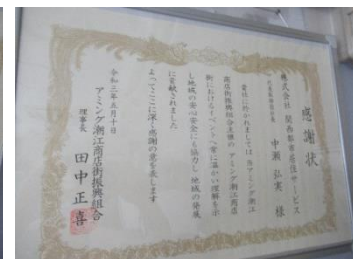 感謝状
株式会社 関西都市居住サービス
代表取締役社長
中瀬 弘実 様
貴社に於かれましては 当アミング潮江
商店街振興組合主催の アミング潮江商店
街におけるイベントへ常に温かい理解を示
し地域の安心安全にも協力し 地域の発展
に貢献されました
よってここに深く感謝の意を表します
令和三年五月十日
アミング潮江商店街振興組合
理事長
田中正喜